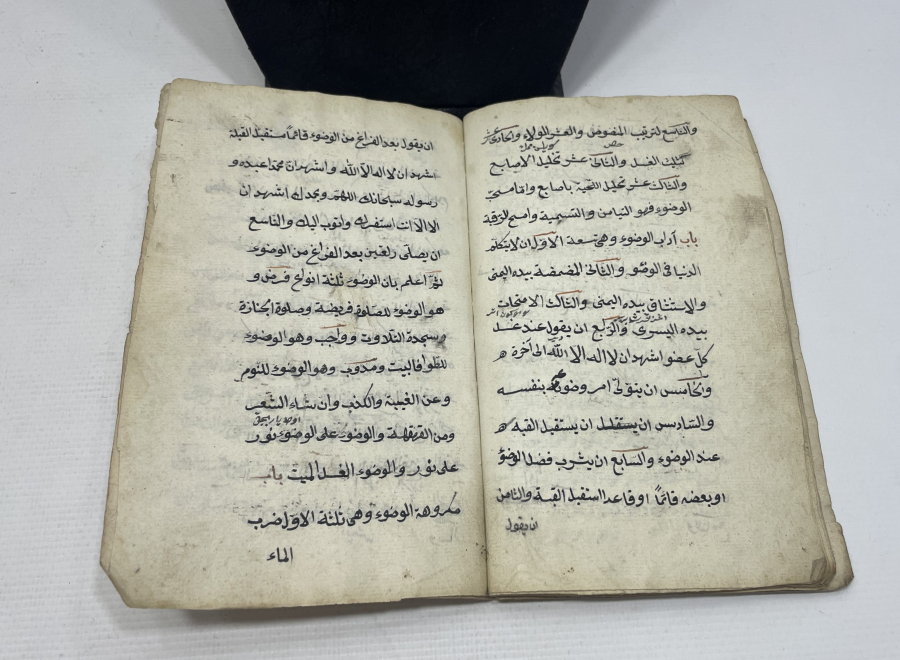 والتاسع لترتيب المنصوص والعشر الولاء والحادى عشر
الغسل والثانى عشر تخليل الاصابع
والثالث عشر تخليل اللحية باصابع واما مستحب
الوضوء فهو التيامن والتسمية وامسح الرقبة
باب آداب الوضوء وهى تسعة الاول ان لا يتكلم
الدنيا فى الوضوء والثانى المضمضة بيده اليمنى
والاستنشاق بيده اليمنى والثالث الامتخاط
بيده اليسرى والرابع ان يقول عند غسل
كل عضو اشهد ان لا اله الا الله الى آخره
والخامس ان يتولى امر وضوئه بنفسه
والسادس ان يستقبل القبلة
عند الوضوء والسابع ان يشرب فضل الوضوء
او بعضه قائماً او قاعدا استقبل القبلة والثامن
ان يقول
ان يقول بعد الفراغ من الوضوء قائماً مستقبل القبلة
اشهد ان لا اله الا الله واشهد ان محمدا عبده و
رسوله سبحانك اللهم وبحمدك اشهد ان
لا اله الا انت استغفرك واتوب اليك والتاسع
ان يصلى ركعتين بعد الفراغ من الوضوء
ثم اعلم بان الوضوء ثلثة انواع فرض و
هو الوضوء للصلوة فريضة وصلوة الجنازة
وسجدة التلاوت وواجب وهو الوضوء
للطواف البيت ومندوب وهو الوضوء للنوم
وعن الغيبة والكذب وانشاء الشعر
ومن القهقهة والوضوء على الوضوء نور
على نور والوضوء الغسل الميت باب
مكروهة الوضوء وهى ثلثة الاول ضرب
الماء